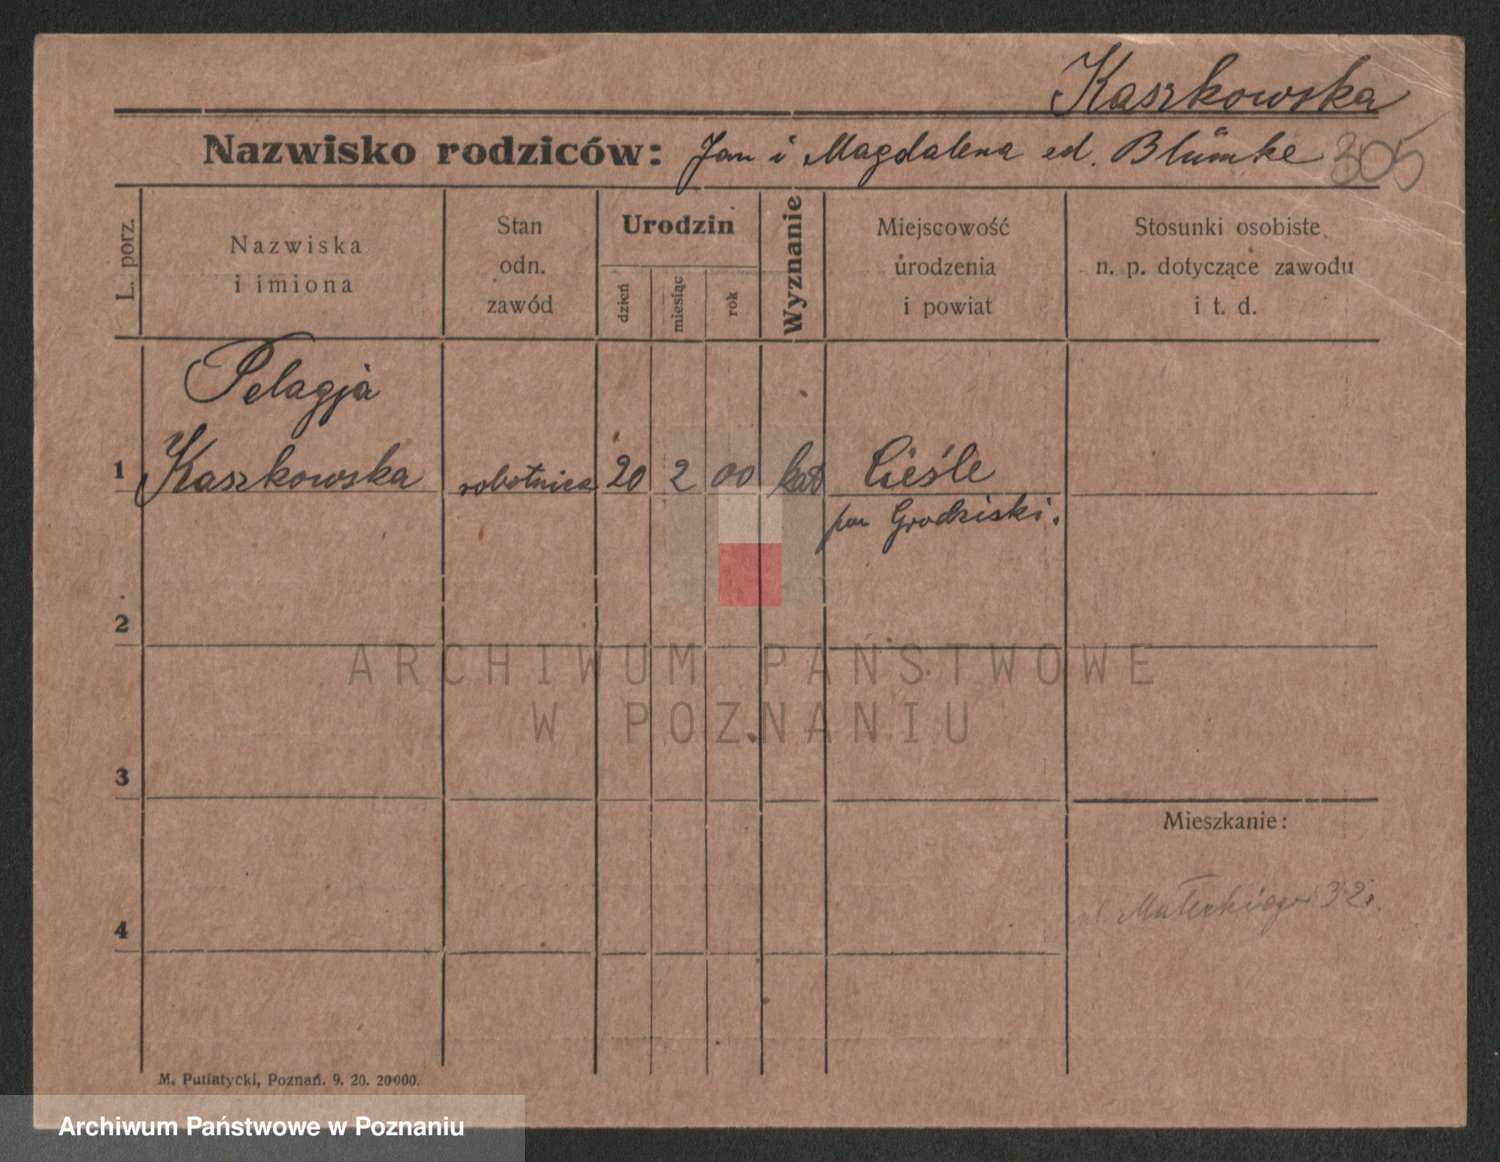 Kaszkowska
Nazwisko rodziców: Jan i Magdalena ed. Blümke 305
L. porz.
Nazwiska
i imiona
Stan
odn.
zawód
Urodzin
dzień
miesiąc
rok
Wyznanie
Miejscowość
urodzenia
i powiat
Stosunki osobiste
n. p. dotyczące zawodu
i t. d.
Pelagja
1 Kaszkowska robotnica 20 2 00 kat Cieśle
pow Grodziski.
2
ARCHIWUM PAŃSTWOWE
W POZNANIU
3
Mieszkanie:
ul. Małeckiego 32.
4
M. Putiatycki, Poznań. 9. 20. 20000.
Archiwum Państwowe w Poznaniu